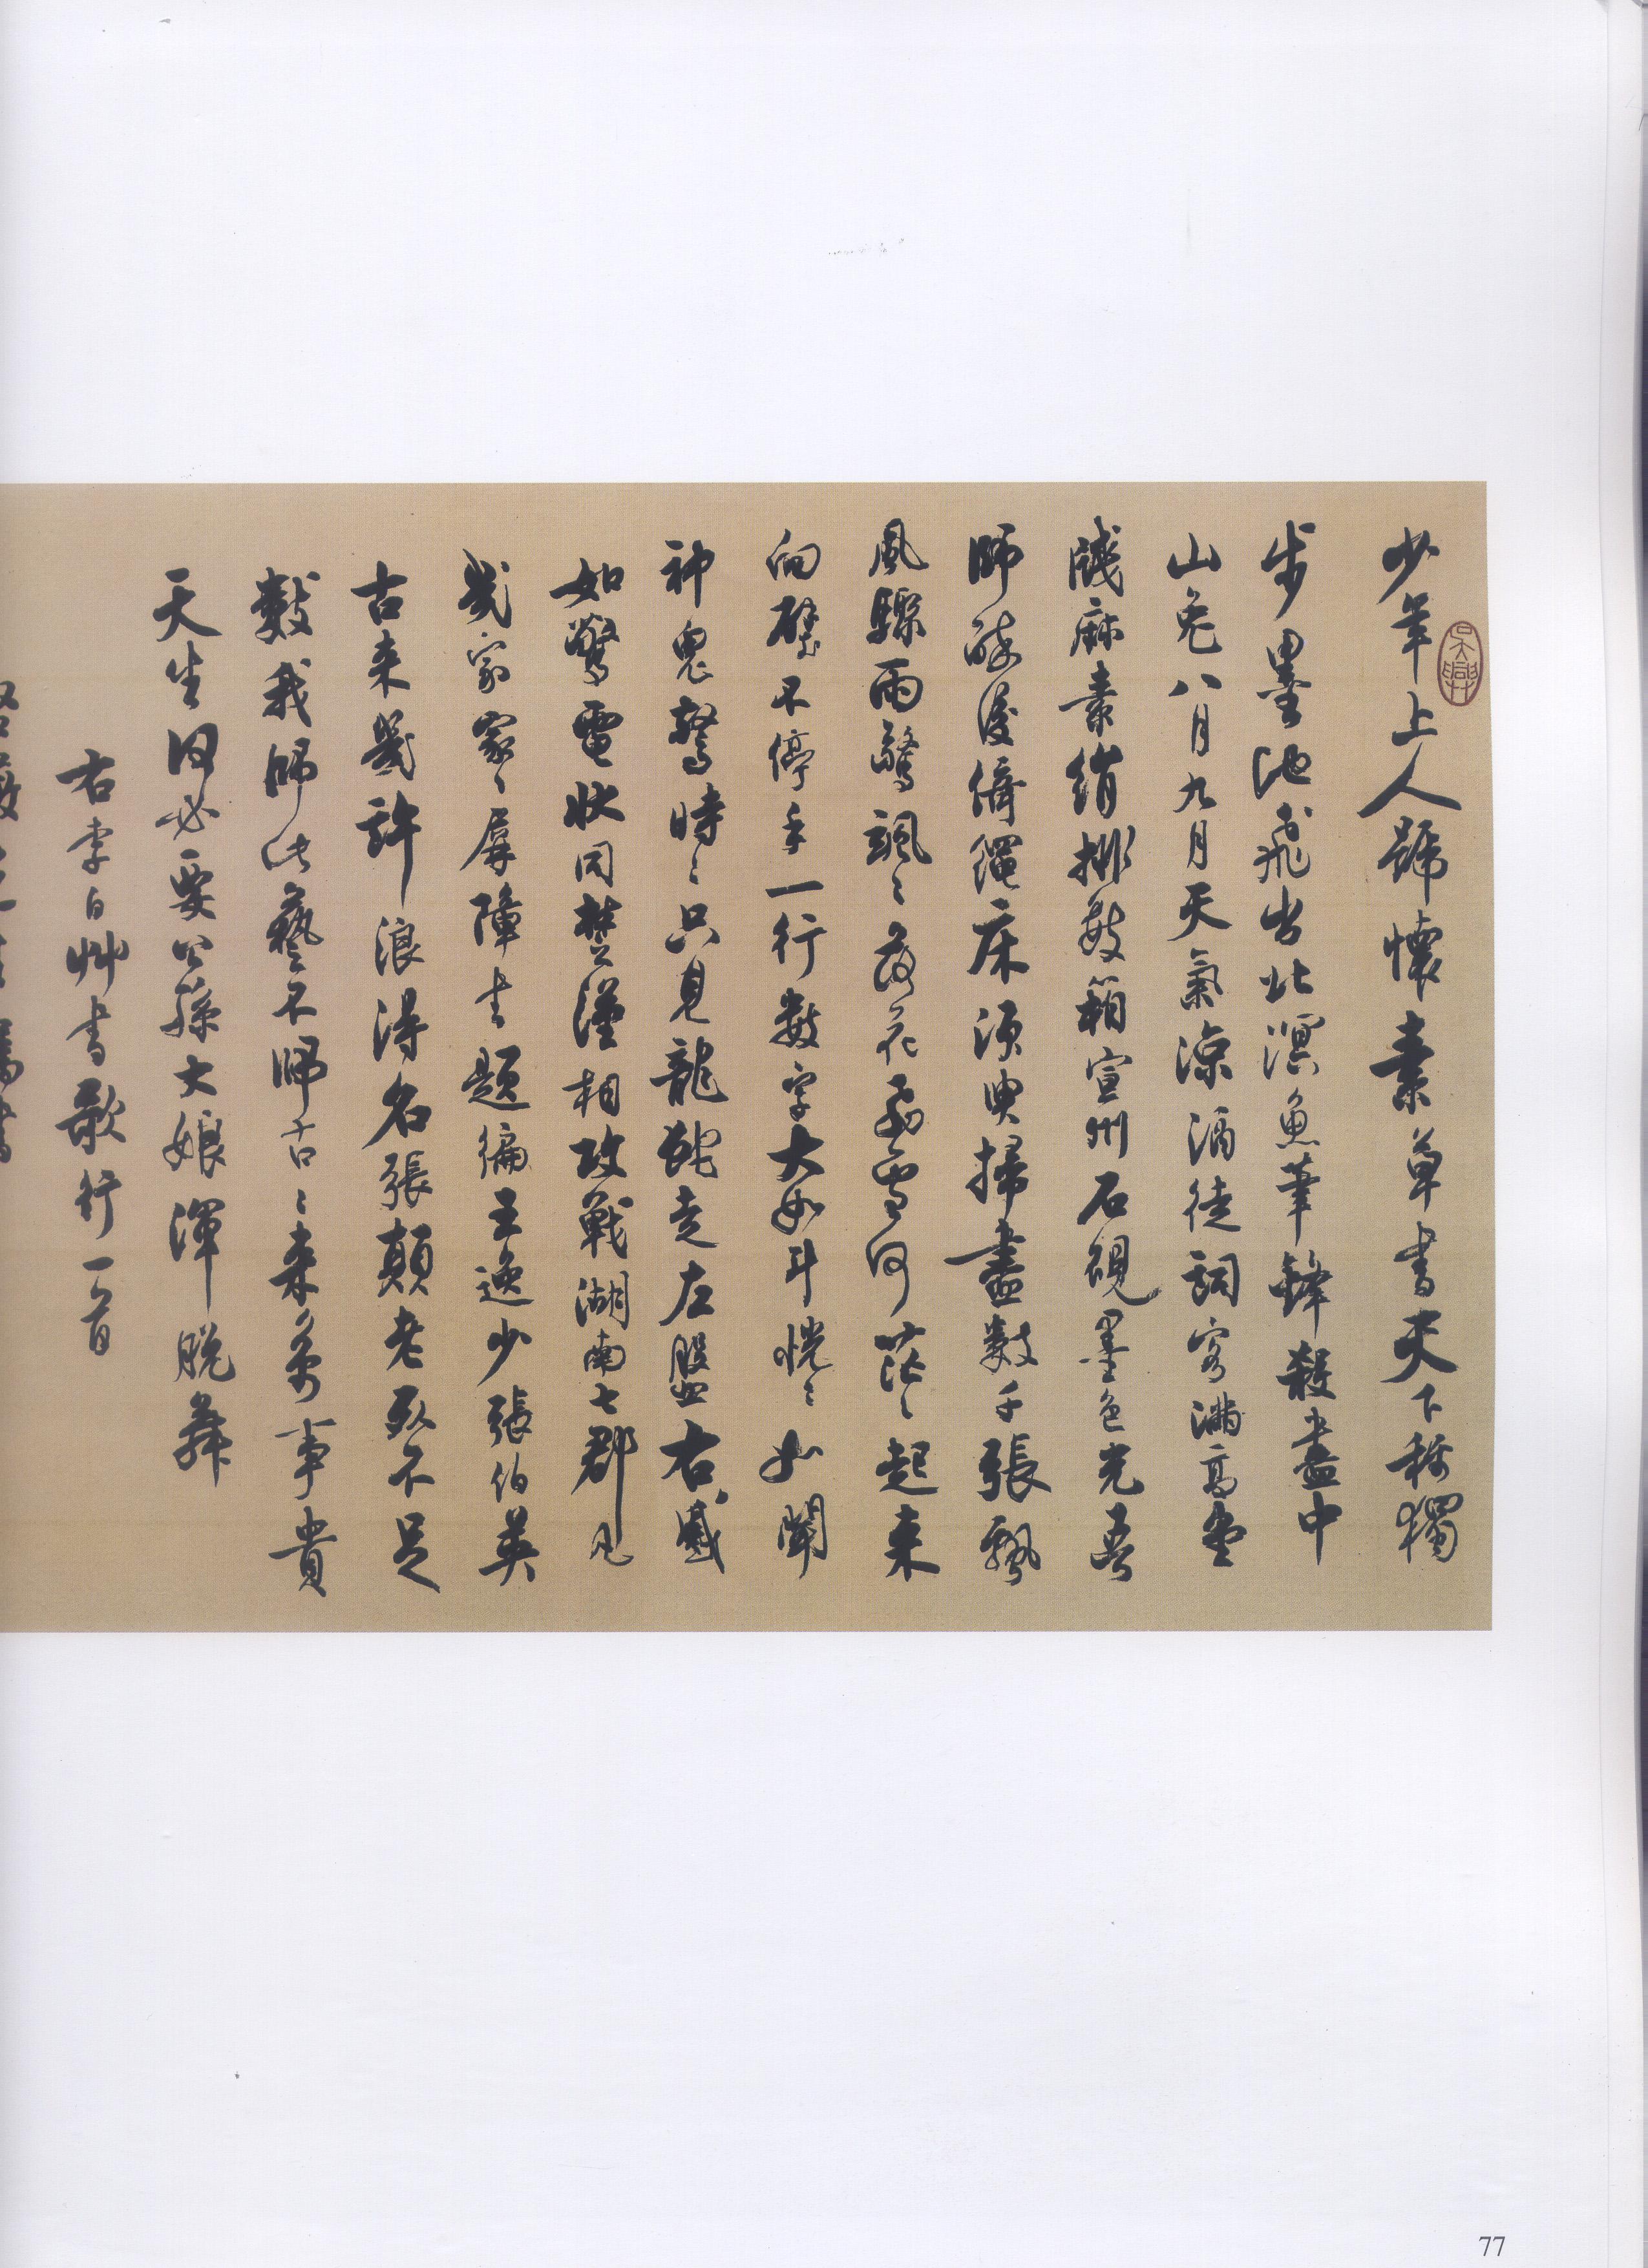 少年上人號懷素草書天下稱獨
步墨池飛出北溟魚筆鋒殺盡中
山兔八月九月天氣涼酒徒詞客滿高堂
牋麻素絹排數箱宣州石硯墨色光吾
師醉後倚繩床須臾掃盡數千張飄
風驟雨驚颯〻落花飛雪何茫〻起来
向壁不停手一行數字大如斗恍〻如聞
神鬼驚時〻只見龍蛇走左盤右蹙
如驚電狀同楚漢相攻戰湖南七郡凡
幾家家〻屏障書題徧王逸少張伯英
古来幾許浪得名張顛老死不足
數我師此藝不師古古〻来萬事貴
天生何必要公孫大娘渾脫舞
右李白艸書歌行一首
吳興
77